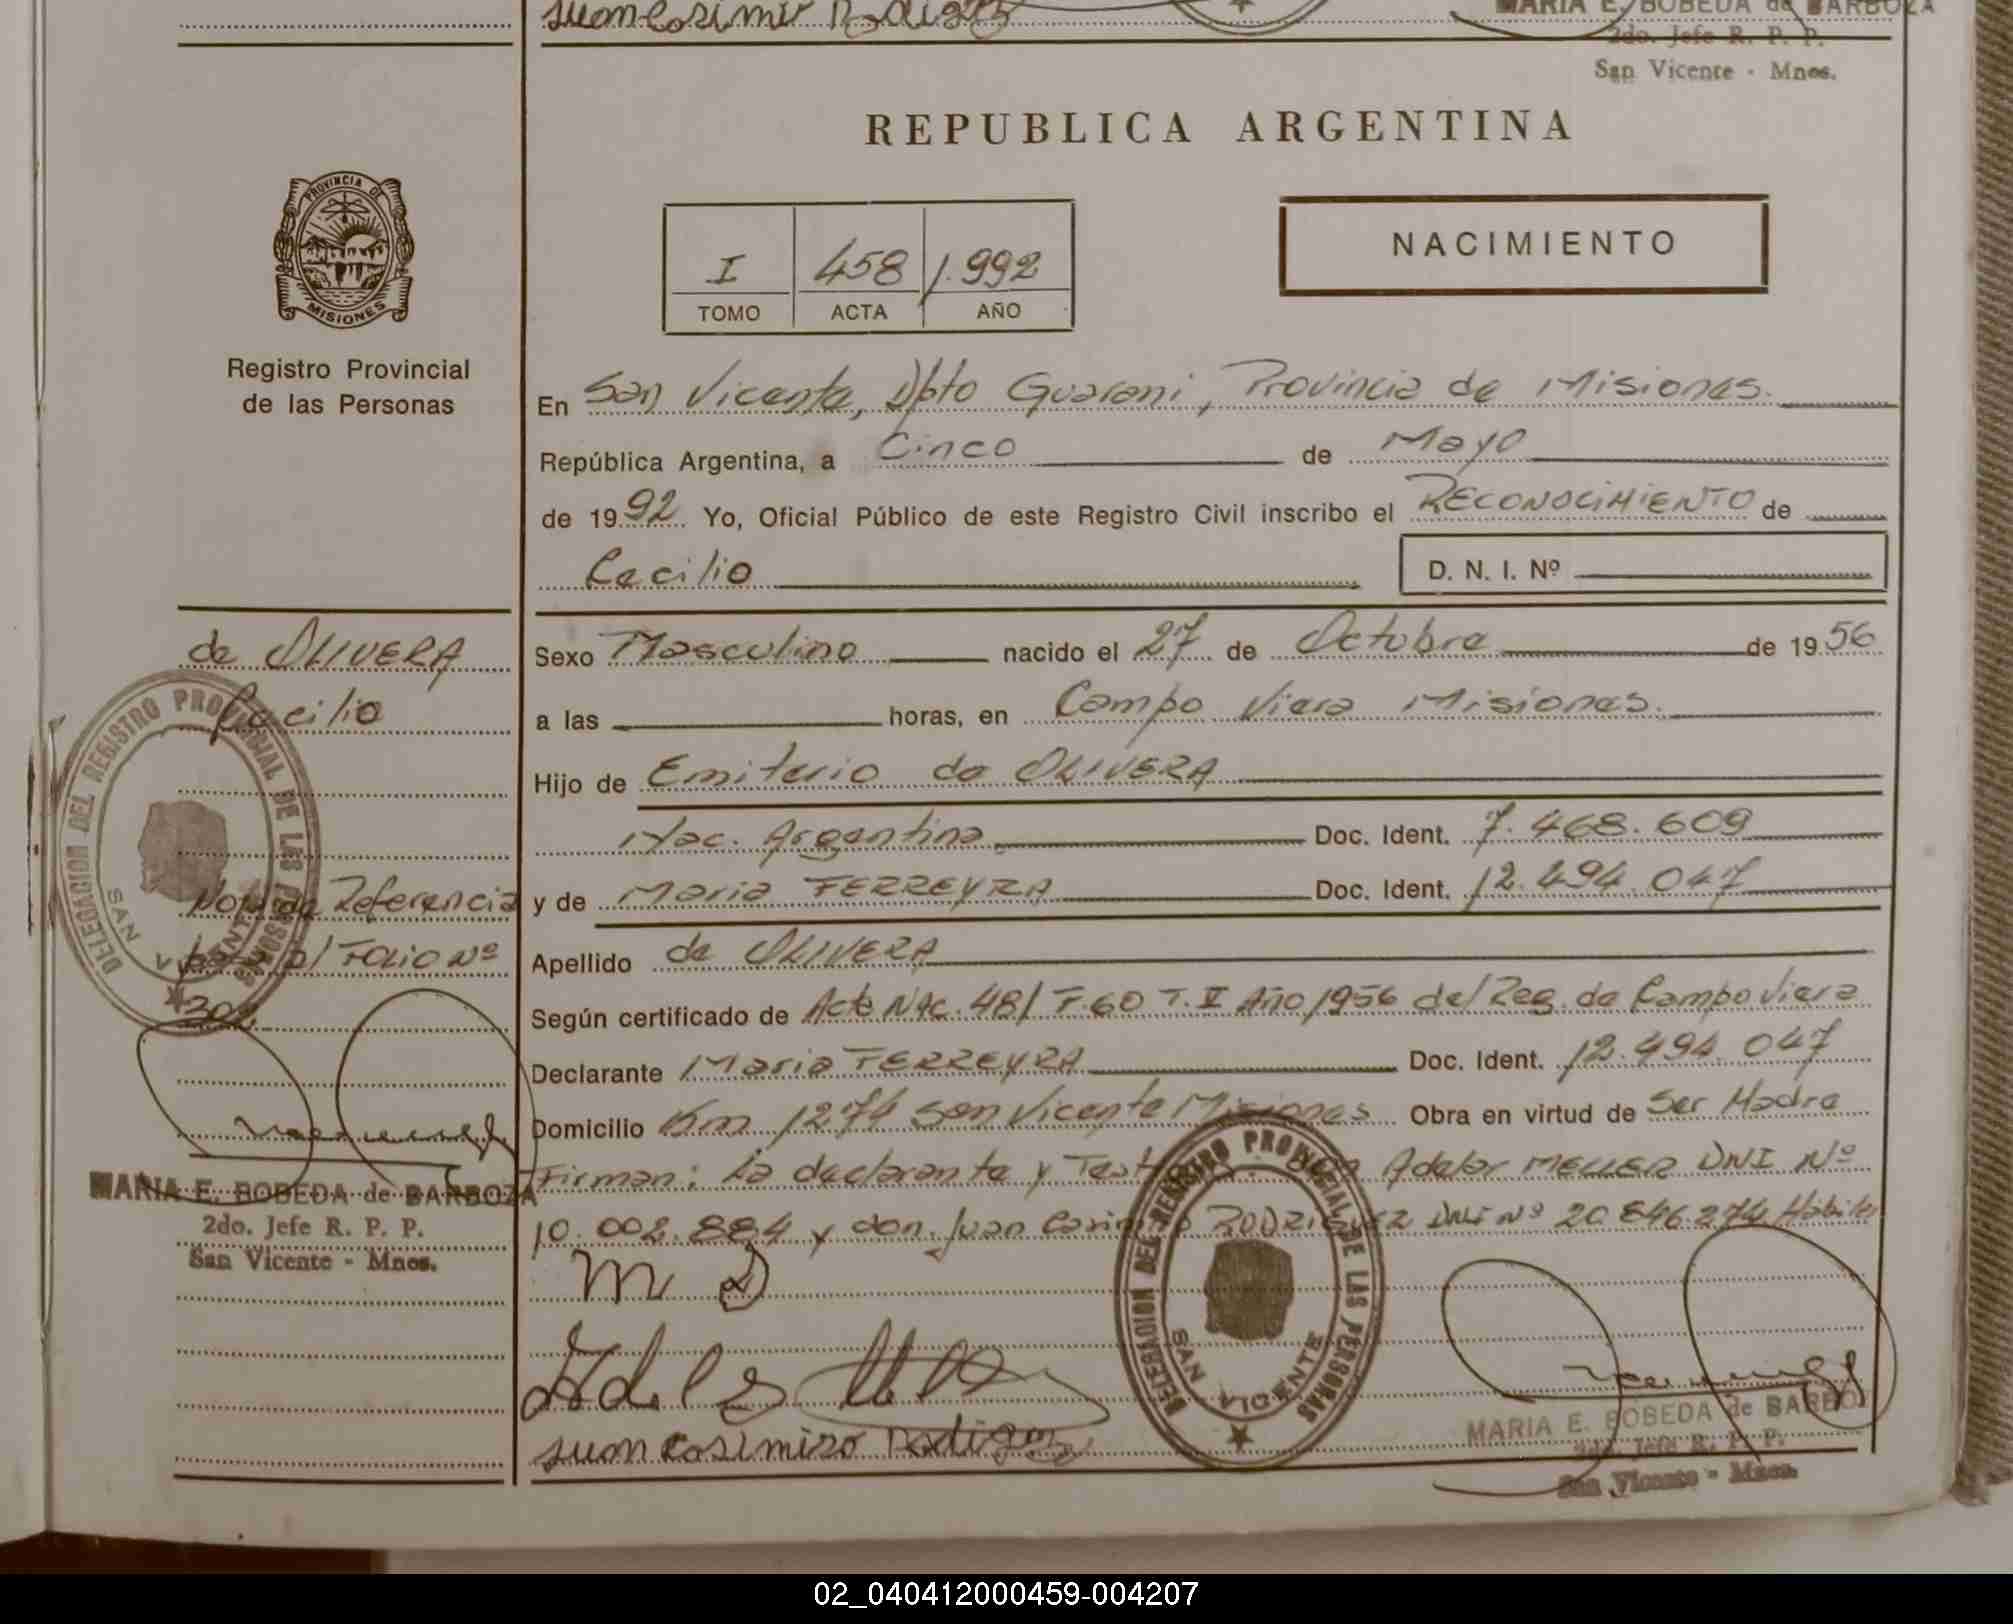 Juan Casimiro Rodigez
MARIA E. BOBEDA de BARBOZA
2do. Jefe R. P. P.
San Vicente - Mnes.
REPUBLICA ARGENTINA
PROVINCIA DE
MISIONES
I 458 1.992
TOMO ACTA AÑO
NACIMIENTO
Registro Provincial
de las Personas
En San Vicente, Dpto Guarani, Provincia de Misiones.
República Argentina, a Cinco de Mayo
de 1992 Yo, Oficial Público de este Registro Civil inscribo el RECONOCIMIENTO de
Cecilio D. N. I. Nº
de OLIVERA
Cecilio
Sexo Masculino nacido el 27 de Octubre de 1956
a las horas, en Campo Viera Misiones.
Hijo de Emiterio de OLIVERA
Nac. Argentina. Doc. Ident. 7.468.609
y de Maria FERREYRA Doc. Ident. 12.494.047
Apellido de OLIVERA
Según certificado de Acta NAC. 481 F.60 T. II Año 1956 del Reg. de Campo Viera
Declarante Maria FERREYRA Doc. Ident. 12.494.047
Domicilio Km 1274 San Vicente Misiones Obra en virtud de Ser Madre
Firman: La declarante y Adelar MELLER DNI Nº
10.002.884 y don Juan Casimiro RODRIGUEZ DNI Nº 20.846.274 Hábiles
M D
Juan Casimiro Rodigez
Nota de Referencia
Folio Nº
DELEGACION DEL REGISTRO PROVINCIAL DE LAS PERSONAS
SAN VICENTE
MARIA E. BOBEDA de BARBOZA
2do. Jefe R. P. P.
San Vicente - Mnes.
DELEGACION DEL REGISTRO PROVINCIAL DE LAS PERSONAS
SAN VICENTE
MARIA E. BOBEDA de BARBO
2do. Jefe R. P. P.
San Vicente - Mnes.
02_040412000459-004207